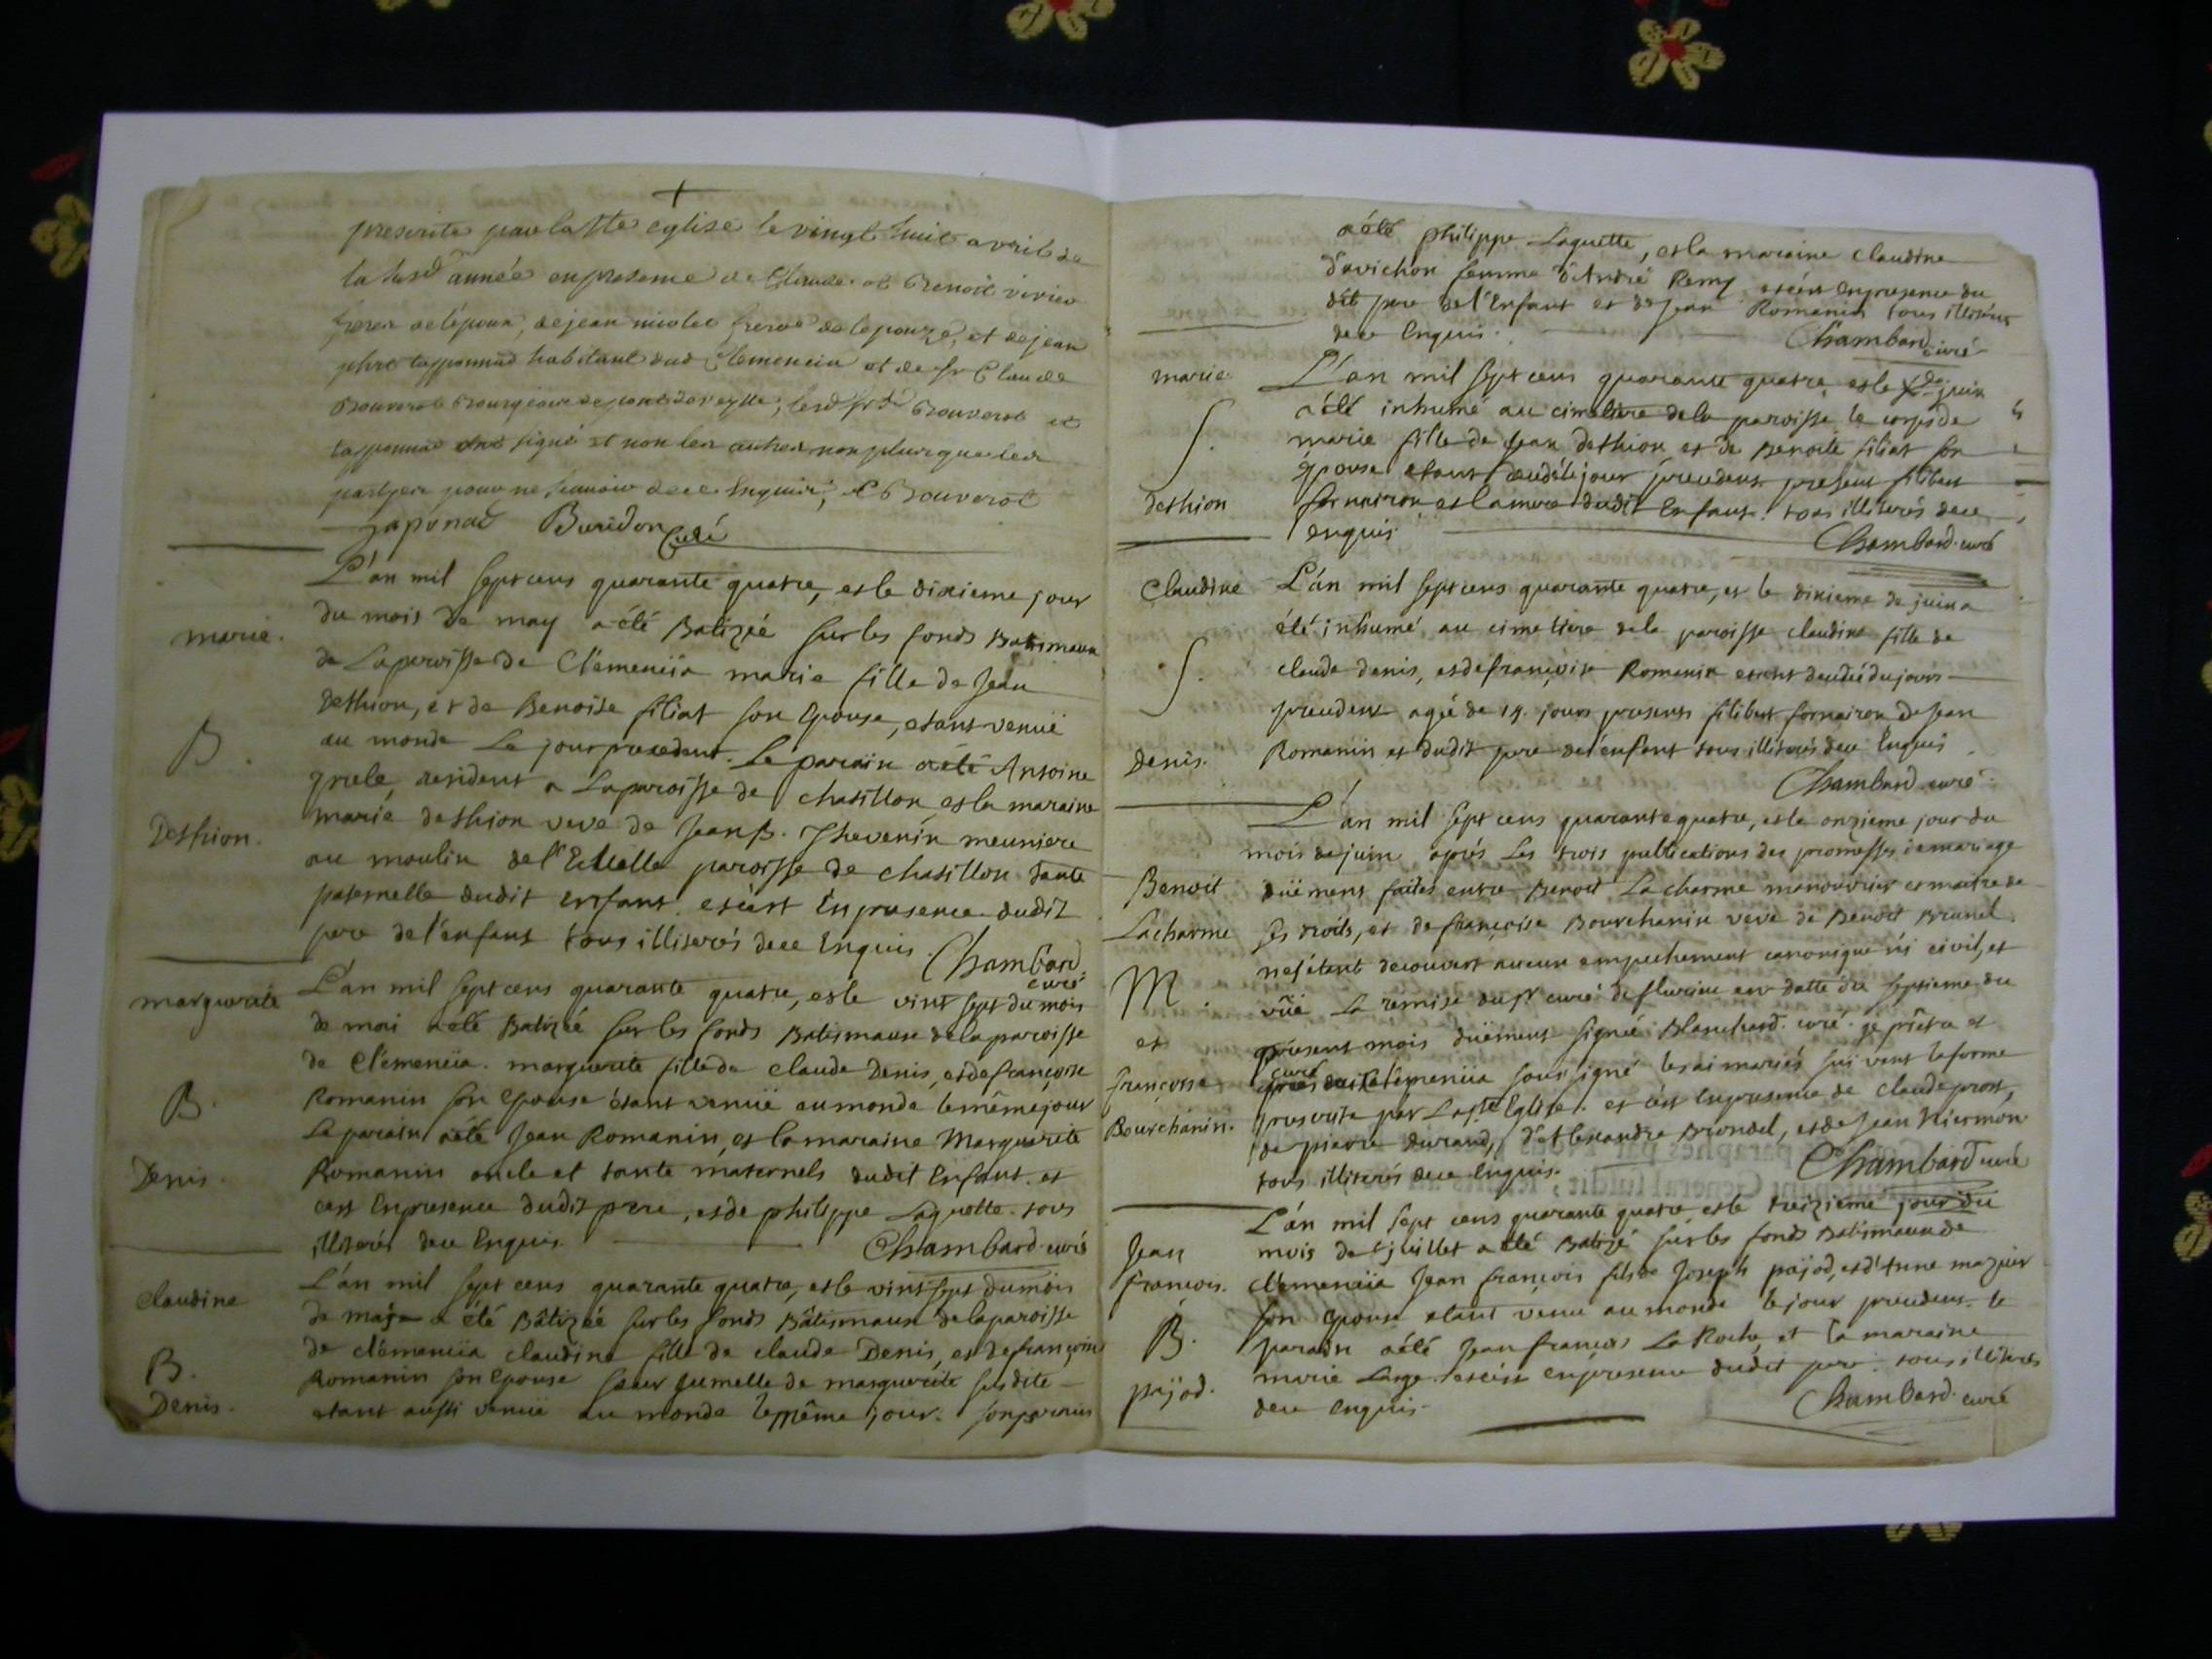 +
prescrite par la Ste eglise le vingt huit avril de
la susd année en presence de Claude et Benoit virieu
freres de lépoux, de jean nicolet frere de lépouze, et de jean
phre tapponnad habitant dud Clemencia et de sr Claude
Bouverot Bourgeois de pont de veylle; lesd srs Bouverot et
tapponnad ont signé et non les autres non plus que les
parties pour ne sçavoir de ce Enquis; C Bouverot
Japonad Buridon Curé
L'an mil sept cens quarante quatre, et le dixieme jour
marie. du mois de may a été Batizée sur les fonds Batismaux
de La paroisse de Clémenciia marie fille de Jean
Dethion, et de Benoite filiat son Epouse, etant venuë
B. au monde Le jour precedent. Le parain a été Antoine
resident a La paroisse de chatillon et la maraine
Dethion. marie dethion veve de Jean B. Thevenin meuniere
au moulin de l' paroisse de chatillon tante
paternelle dudit enfant. et c'est En presence dudit
pere de l'enfant tous illiterés de ce Enquis. Chambard curé
marguerite L'an mil sept cens quarante quatre, et le vint sept du mois
de mai a été Batizée sur les fonds Batismaux de la paroisse
de Clémenciia. marguerite fille de claude Denis, et de françoise
B. Romanin son Epouse étant venuë au monde le même jour
Le parain a été Jean Romanin, et la maraine Marguerite
Denis. Romanin oncle et tante maternels dudit Enfant. et
c'est En presence dudit pere, et de philippe Laguette. tous
illiterés de ce Enquis. Chambard curé
claudine L'an mil sept cens quarante quatre, et le vint sept du mois
de may a été Bâtizée sur les fonds Bâtismaux de la paroisse
de clémenciia claudine fille de claude Denis, et de françoise
B. Romanin son Epouse soeur jumelle de marguerite susdite
Denis. etant aussi venuë au monde le même jour. son parain
a été philippe Laguette, et la maraine claudine
davichon femme d'André Remy et c'est en presence du
dit pere de l'Enfant et de Jean Romanin tous illiterés
de ce Enquis. Chambard curé
marie L'an mil sept cens quarante quatre, et le juin
a été inhumé au cimetiere de la paroisse le corps de
S. marie fille de Jean dethion, et de Benoite filiat son
épouse etant decedée le jour precedent present filibert
dethion fornairon, et la mere dudit Enfant. tous illiterés de ce
enquis. Chambard. curé
Claudine L'an mil sept cens quarante quatre, et le dixieme de juin a
été inhumé au cimetiere de la paroisse claudine fille de
S. claude denis, et de françoise Romanin etant decedée du jour
precedent agée de 14. jours presents filibert fornairon de Jean
Denis. Romanin et dudit pere de l'enfant tous illiterés de ce Enquis
Chambard. curé
L'an mil sept cens quarante quatre, et le onzieme jour du
mois de juin après Les trois publications des promesses de mariage
Benoit düement faites entre Benoit La charme manouvrier et maitre de
Lacharme ses droits, et de françoise Bourchanin veve de Benoit Brunel
ne s'étant decouvert aucun empechement canonique ni civil, et
M. vûë La remise du sr curé de flurieu en datte du septieme du
et present mois düement signée Blanchard. curé. je prêtre et
françoise curé de Clémenciia sousigné les ai mariés suivant la forme
Bourchanin. prescrite par La ste Eglise. et c'est En presence de claude prost,
de pierre durand, d'Alexandre Brondel, et de Jean Niermon
tous illiterés de ce Enquis. Chambard curé
L'an mil sept cens quarante quatre et le treizieme jour du
Jean mois de juillet a été Batizé sur les fonds Batismaux de
françois. clémenciia Jean françois fils de Joseph pajod, et d'Anne mazuir
son Epouse etant venu au monde le jour precedent. le
B. parain a été Jean françois La Roche, et la maraine
pajod. marie Large. et c'est en presence dudit pere. tous illiterés
de ce Enquis. Chambard. curé